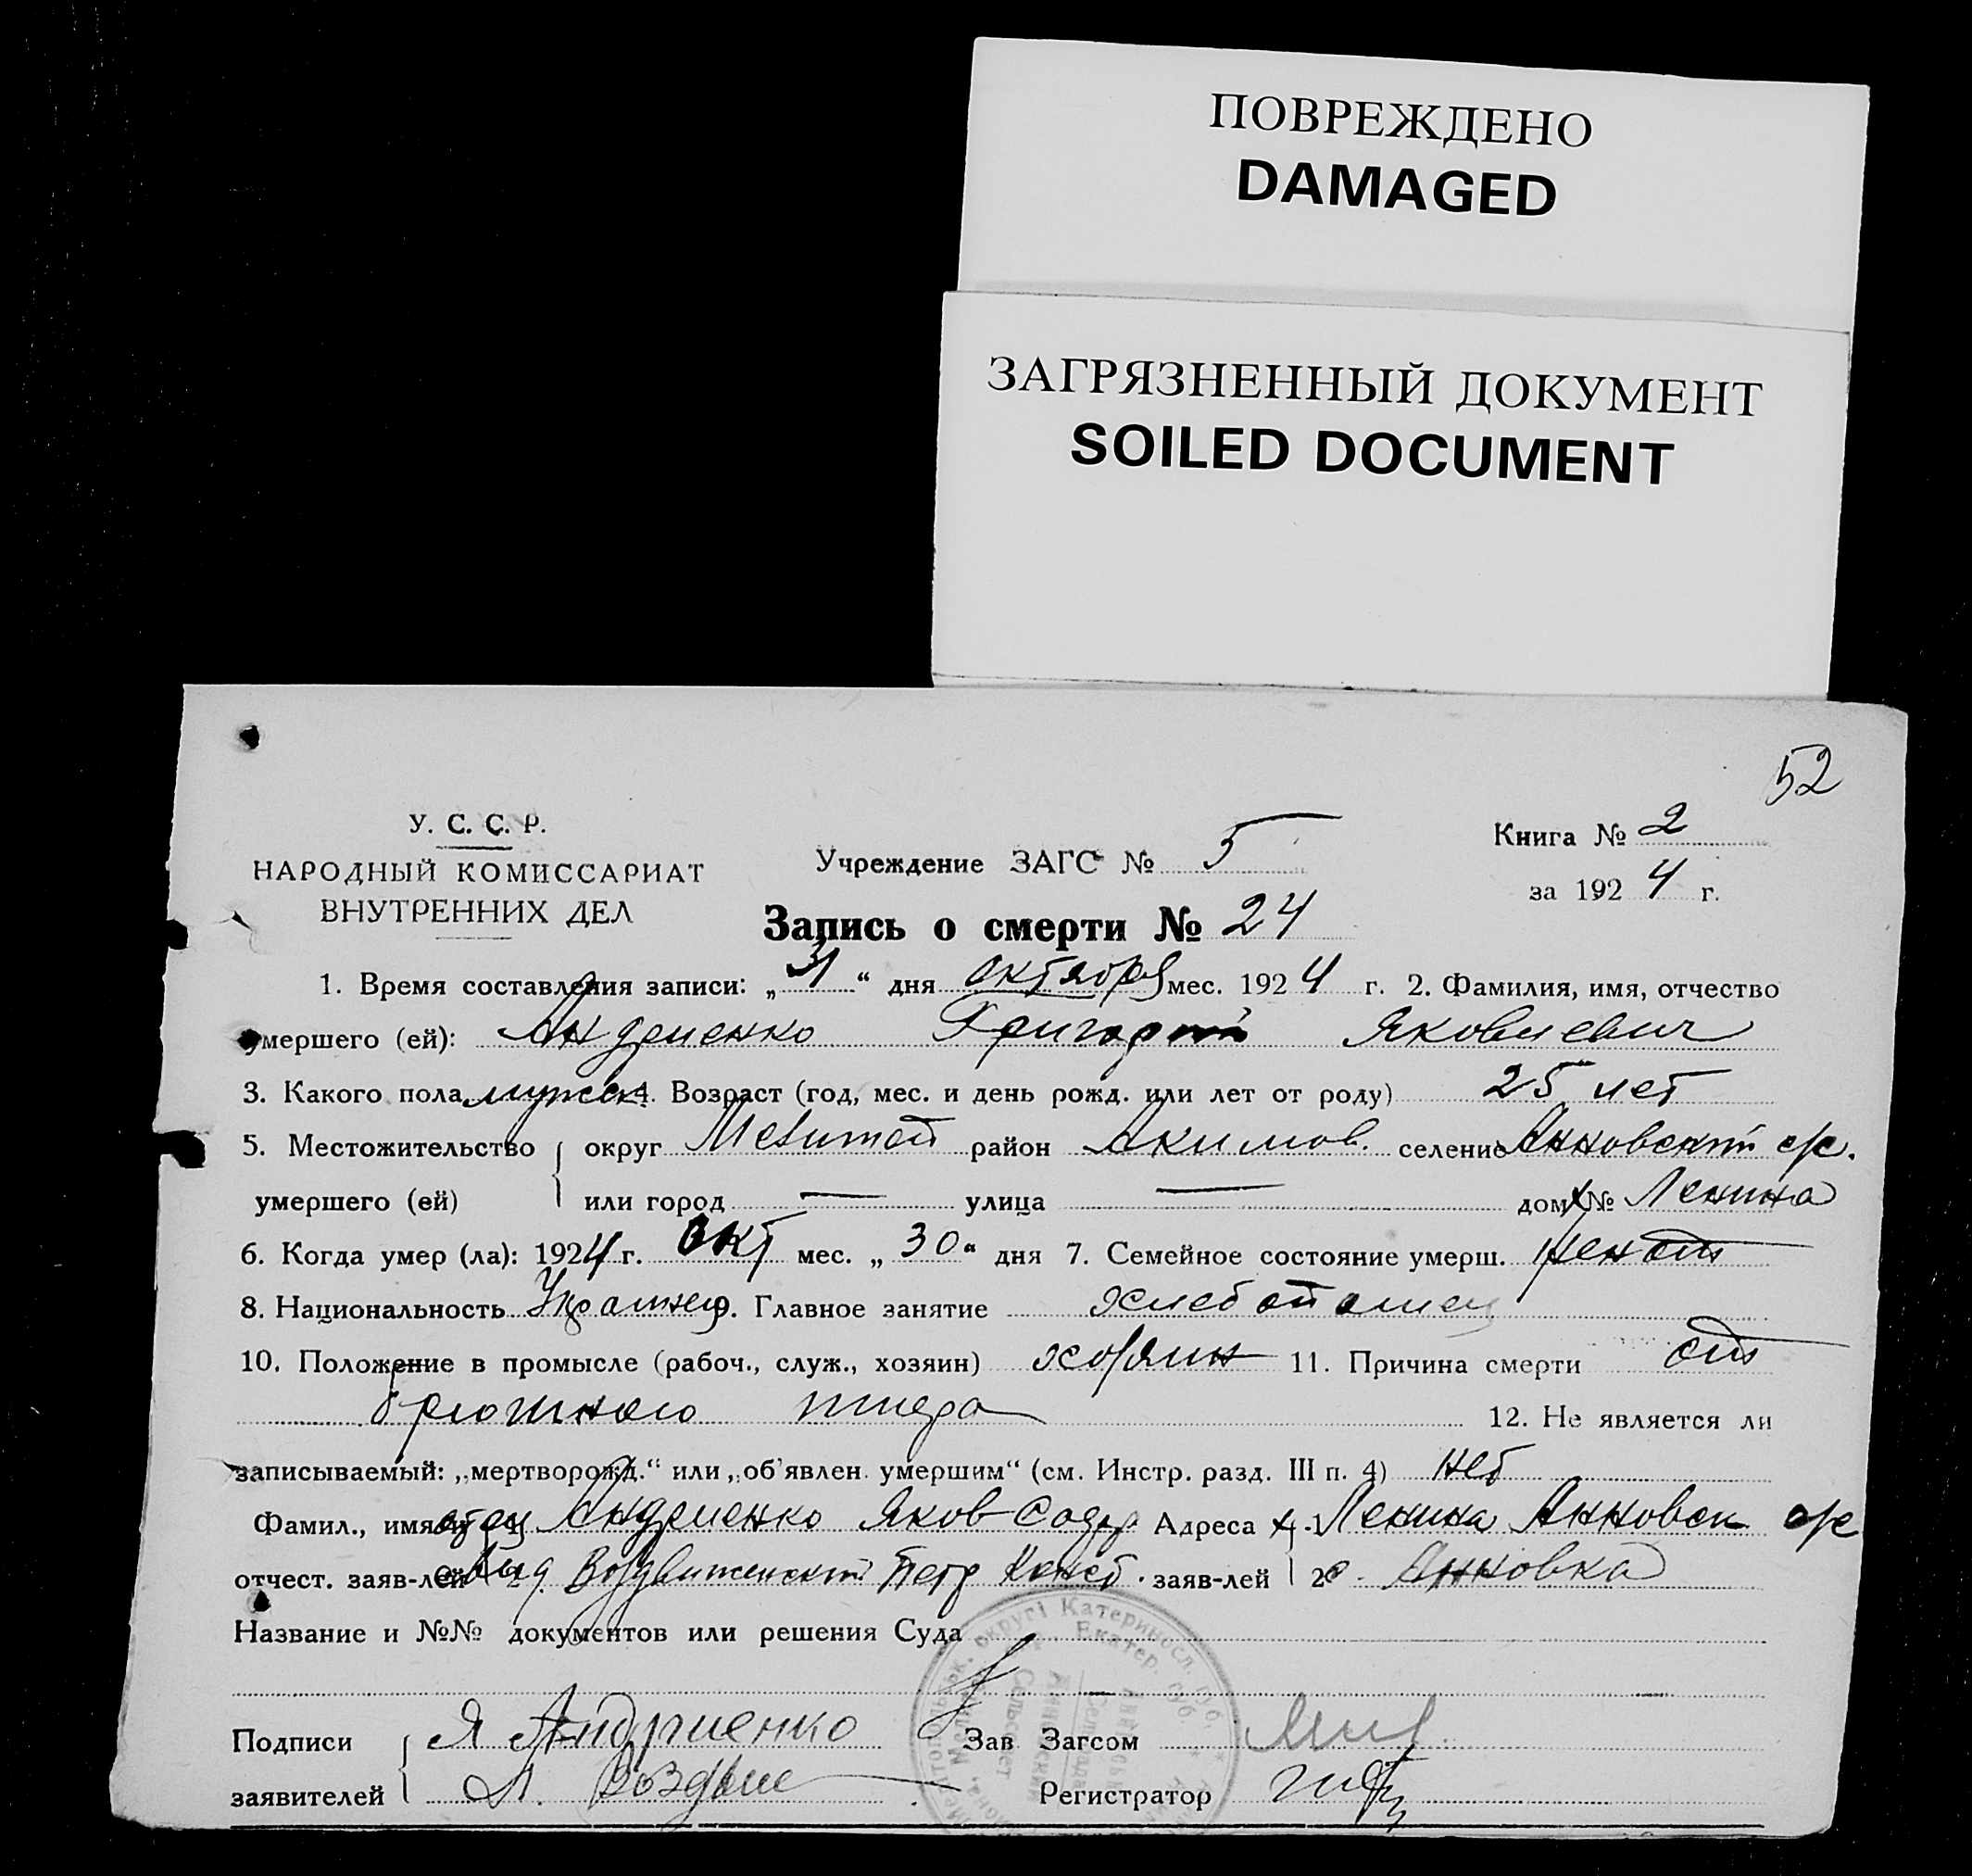 ПОВРЕЖДЕНО
DAMAGED
ЗАГРЯЗНЕННЫЙ ДОКУМЕНТ
SOILED DOCUMENT
52
У. С. С. Р.
НАРОДНЫЙ КОМИССАРИАТ
ВНУТРЕННИХ ДЕЛ
Учреждение ЗАГС № 5
Книга № 2
за 1924 г.
Запись о смерти № 24
1. Время составления записи: „31“ дня октября мес. 1924 г. 2. Фамилия, имя, отчество
умершего (ей): Андриенко Григорий Яковлевич
3. Какого пола мужск 4. Возраст (год, мес. и день рожд. или лет от роду) 25 лет
5. Местожительство округ Мелитоп район Акимов. селение Анновский с/с.
умершего (ей) или город — улица — дом № х Ленина
6. Когда умер (ла): 1924 г. Окт мес. „30“ дня 7. Семейное состояние умерш. женат
8. Национальность Украинец 9. Главное занятие хлебопашец
10. Положение в промысле (рабоч., служ., хозяин) хозяин 11. Причина смерти от
брюшного тифа 12. Не является ли
записываемый: „мертворожд.“ или „об'явлен. умершим“ (см. Инстр. разд. III п. 4) нет
Фамил., имя и отец Андриенко Яков Адреса 1 х. Ленина Анновск с/с
отчест. заяв-лей 2 Воздвиженский Петр Конст. заяв-лей 2 с. Анновка
Название и №№ документов или решения Суда
Подписи Я Андриенко Зав Загсом
заявителей П. Воздви Регистратор